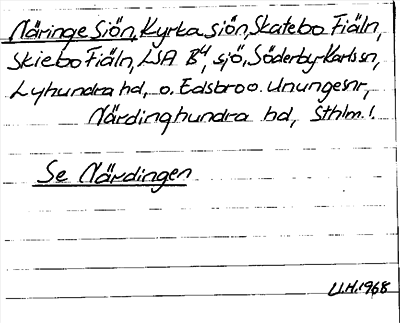 Näringe Siön, Kyrka siön, Skatebo Fiäln,
Skiebo Fiäln, LSA B4, sjö, Söderby-Karls sn,
Lyhundra hd, o. Edsbro o. Ununge snr,
Närdinghundra hd, Sthlm. l.
Se Närdingen
U.H. 1968